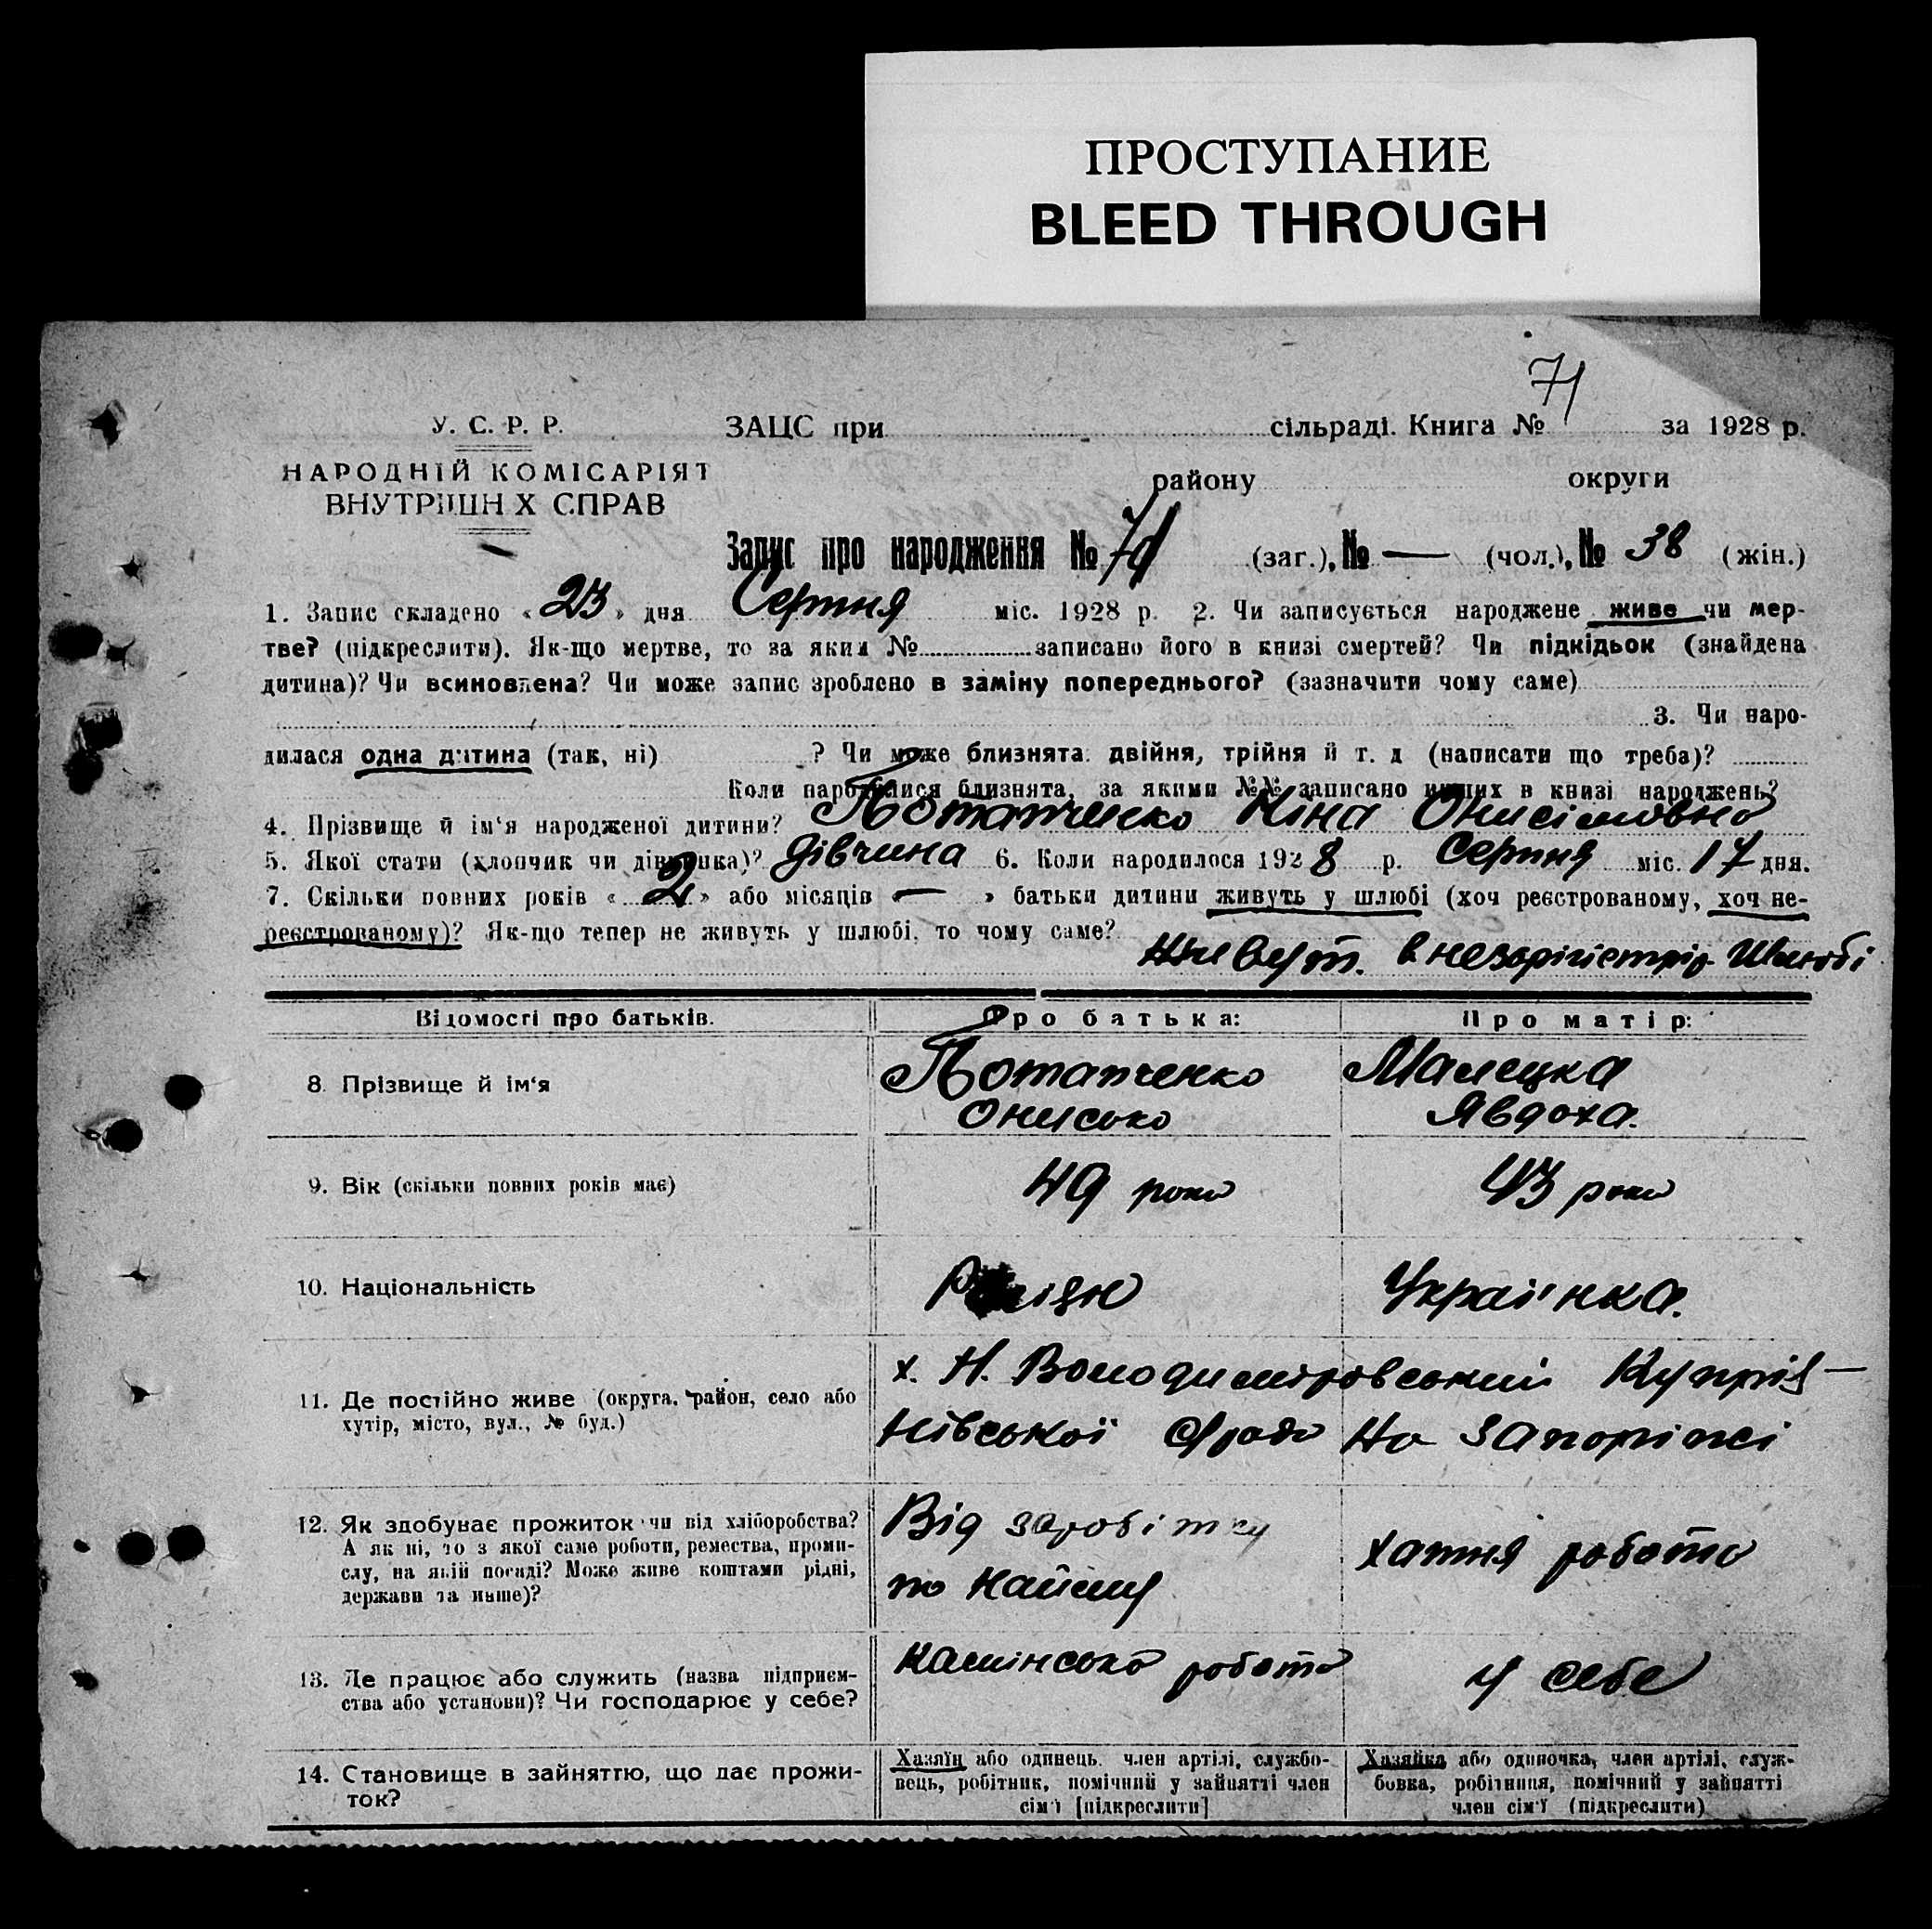 ПРОСТУПАНИЕ
BLEED THROUGH
71
У. С. Р. Р. ЗАЦС при сільраді. Книга № за 1928 р.
НАРОДНІЙ КОМІСАРІЯТ району округи
ВНУТРІШНІХ СПРАВ
Запис про народження № 71 (заг.), № — (чол.), № 38 (жін.)
1. Запис складено « 23 » дня Серпня міс. 1928 р. 2. Чи записується народжене живе чи мер-
тве? (підкреслити). Як-що мертве, то за яким № записано його в книзі смертей? Чи підкідьок (знайдена
дитина)? Чи всиновлена? Чи може запис зроблено в заміну попереднього? (зазначити чому саме)
3. Чи наро-
дилася одна дитина (так, ні) ? Чи може близнята: двійня, трійня й т. д (написати що треба)?
Коли народилися близнята, за якими №№ записано инших в книзі народжень?
4. Прізвище й ім‘я народженої дитини? Потапченко Ніна Онисімовна
5. Якої стати (хлопчик чи дівчинка)? дівчина 6. Коли народилося 1928 р. Серпня міс. 17 дня.
7. Скільки повних років « 2 » або місяців « — » батьки дитини живуть у шлюбі (хоч реєстрованому, хоч не-
реєстрованому)? Як-що тепер не живуть у шлюбі, то чому саме?
Живут. в Шлюбі
Відомості про батьків. Про батька: Про матір:
8. Прізвище й ім‘я Потапченко Малецка
Онисько Явдоха.
9. Вік (скільки повних років має) 49 роки 43 роки
10. Національність Українка.
11. Де постійно живе (округа, район, село або х. Н. Володимировський Купрія-
хутір, місто, вул., № буд.) нівської с/ради на Запоріжжі
12. Як здобуває прожиток чи від хліборобства? Від заробітку
А як ні, то з якої саме роботи, ремества, проми- хатня робота
слу, на якій посаді? Може живе коштами рідні, по найму
держави та инше)?
13. Де працює або служить (назва підприєм- робота у себе
ства або установи)? Чи господарює у себе?
14. Становище в зайняттю, що дає прожи- Хазяїн або одинець, член артілі, службо- Хазяйка або одиночка, член артілі, служ-
ток? вець, робітник, помічний у зайнятті член бовка, робітниця, помічний у зайнятті
сім‘ї [підкреслити] член сім‘ї (підкреслити)